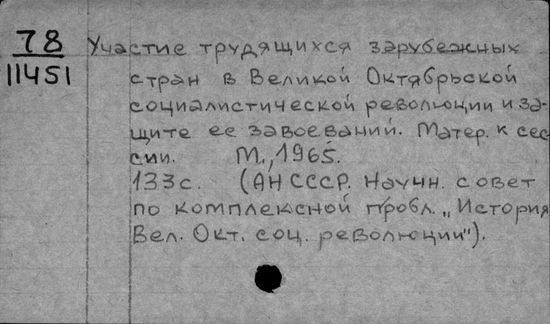 78
11451
Участие трудящихся зарубежных
стран в Великой Октябрьской
социалистической революции и за-
щите ее завоеваний. Матер. к сес-
сии. М., 1965.
133с. (АН СССР. Научн. совет
по комплексной пробл. „История
Вел. Окт. соц. революции").